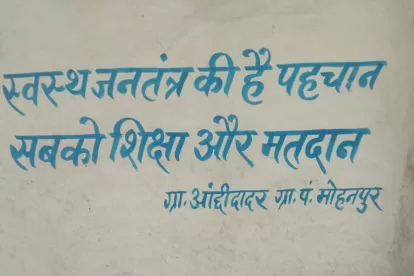 स्वस्थ जनतंत्र की है पहचान
सबको शिक्षा और मतदान
ग्रा. आंद्दीदादर ग्रा. पं. मोहनपुर